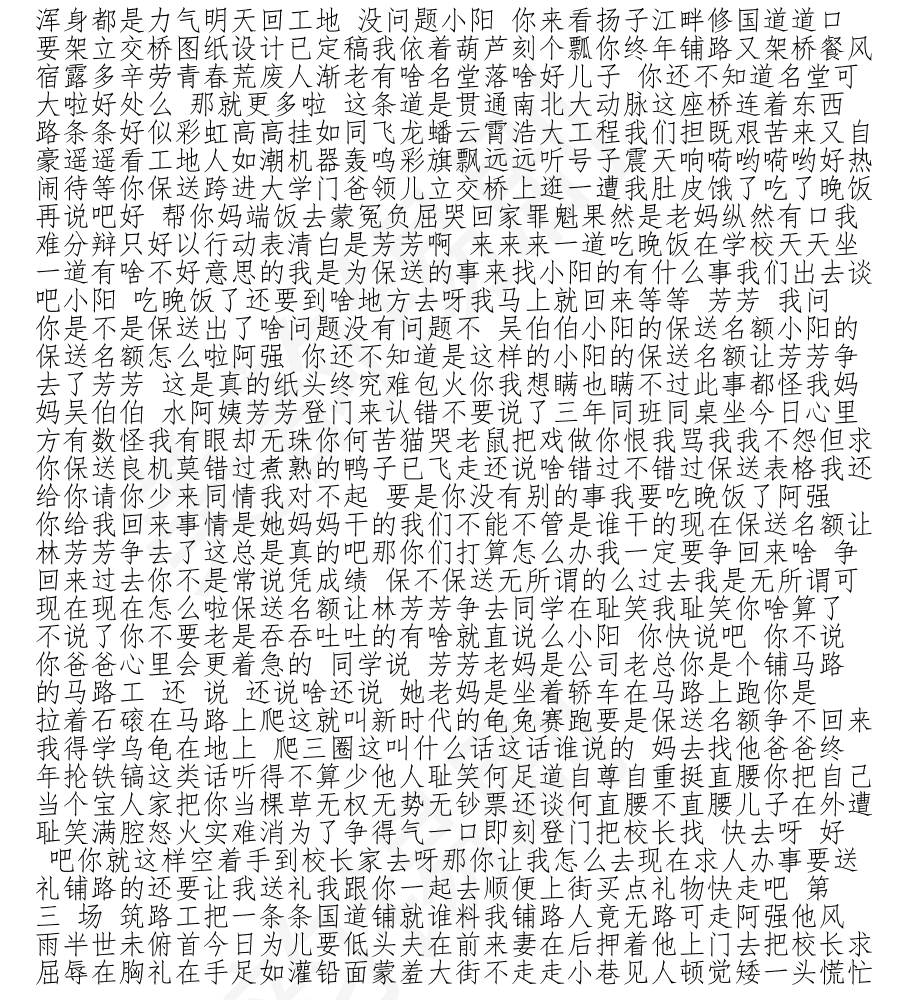 浑身都是力气明天回工地 没问题小阳 你来看扬子江畔修国道道口
要架立交桥图纸设计已定稿我依着葫芦刻个瓢你终年铺路又架桥餐风
宿露多辛劳青春荒废人渐老有啥名堂落啥好儿子 你还不知道名堂可
大啦好处么 那就更多啦 这条道是贯通南北大动脉这座桥连着东西
路条条好似彩虹高高挂如同飞龙蟠云霄浩大工程我们担既艰苦来又自
豪遥遥看工地人如潮机器轰鸣彩旗飘远远听号子震天响嗬哟嗬哟好热
闹待等你保送跨进大学门爸领儿立交桥上逛一遭我肚皮饿了吃了晚饭
再说吧好 帮你妈端饭去蒙冤负屈哭回家罪魁果然是老妈纵然有口我
难分辩只好以行动表清白是芳芳啊 来来来一道吃晚饭在学校天天坐
一道有啥不好意思的我是为保送的事来找小阳的有什么事我们出去谈
吧小阳 吃晚饭了还要到啥地方去呀我马上就回来等等 芳芳 我问
你是不是保送出了啥问题没有问题不 吴伯伯小阳的保送名额小阳的
保送名额怎么啦阿强 你还不知道是这样的小阳的保送名额让芳芳争
去了芳芳 这是真的纸头终究难包火你我想瞒也瞒不过此事都怪我妈
妈吴伯伯 水阿姨芳芳登门来认错不要说了三年同班同桌坐今日心里
方有数怪我有眼却无珠你何苦猫哭老鼠把戏做你恨我骂我我不怨但求
你保送良机莫错过煮熟的鸭子已飞走还说啥错过不错过保送表格我还
给你请你少来同情我对不起 要是你没有别的事我要吃晚饭了阿强
你给我回来事情是她妈妈干的我们不能不管是谁干的现在保送名额让
林芳芳争去了这总是真的吧那你们打算怎么办我一定要争回来啥 争
回来过去你不是常说凭成绩 保不保送无所谓的么过去我是无所谓可
现在现在怎么啦保送名额让林芳芳争去同学在耻笑我耻笑你啥算了
不说了你不要老是吞吞吐吐的有啥就直说么小阳 你快说吧 你不说
你爸爸心里会更着急的 同学说 芳芳老妈是公司老总你是个铺马路
的马路工 还 说 还说啥还说 她老妈是坐着轿车在马路上跑你是
拉着石磙在马路上爬这就叫新时代的龟兔赛跑要是保送名额争不回来
我得学乌龟在地上 爬三圈这叫什么话这话谁说的 妈去找他爸爸终
年抡铁镐这类话听得不算少他人耻笑何足道自尊自重挺直腰你把自己
当个宝人家把你当棵草无权无势无钞票还谈何直腰不直腰儿子在外遭
耻笑满腔怒火实难消为了争得气一口即刻登门把校长找 快去呀 好
吧你就这样空着手到校长家去呀那你让我怎么去现在求人办事要送
礼铺路的还要让我送礼我跟你一起去顺便上街买点礼物快走吧 第
三 场 筑路工把一条条国道铺就谁料我铺路人竟无路可走阿强他风
雨半世未俯首今日为儿要低头夫在前来妻在后押着他上门去把校长求
屈辱在胸礼在手足如灌铅面蒙羞大街不走走小巷见人顿觉矮一头慌忙